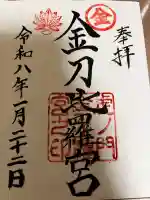 奉拝
㊎
金刀比羅宮
令和八年一月二十二日